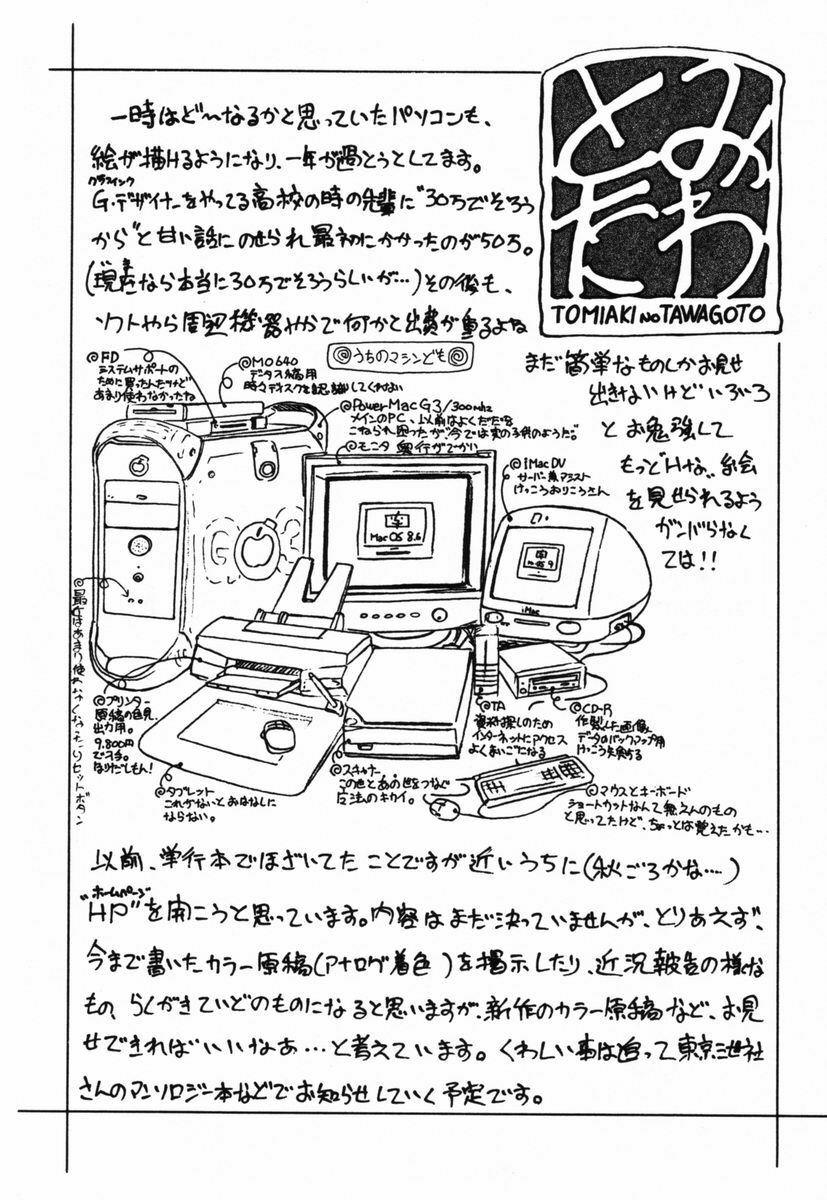 とみ
たわ
TOMIAKI NO TAWAGOTO
一時はど〜なるかと思っていたパソコンも、
絵が描けるようになり、一年が過とうとしてます。
グラフィック
G・デザイナーをやってる高校の時の先輩に"30万でそろう
から"と甘い話にのせられ最初にかかったのが50万。
(現在なら本当に30万でそろうらしいが…)その後も、
ソフトやら周辺機器やかで何かと出費が重るよね
◎うちのマシンども◎
@FD
システムサポートの
ために買ったんだけど
あまり使わなかったね
@MO640
データ入稿用
時々ディスクを認識してくれない
@PowerMacG3/300mhz
メインのPC、以前はよくだだを
こねられ困ったが今では実の子供のようだ。
@モニタ 奥行がでかい
@iMac DV
サーバー兼アシスト
けっこうおりこうさん
Mac OS 8.6
iMac
まだ簡単なものしかお見せ
出きないけどいろいろ
とお勉強して
もっど"Hな"絵
を見せられるよう
ガンバらなく
ては!!
@最近はあまり使わなくなったリセットボタン
@プリンター
原稿の色見、
出力用。
9,800円
で入手。
@タブレット
これがないとおはなしに
ならない。
@スキャナー
この色とあの色をつなぐ
魔法のキカイ。
@TA
資料探しのため
インターネットにアクセス
よくまいごになる
@CD-R
作製した画像
データのバックアップ用
けっこう失敗する
@マウスとキーボード
ショートカットなんて覚えんのもの
と思ってたけど、ちょっとは覚えたかも…
以前、単行本でほざいてたことですが近いうちに(秋ごろかな…)
ホームページ
"HP"を開こうと思っています。内容はまだ決っていませんが、とりあえず、
今まで書いたカラー原稿(アナログ着色)を掲示したり、近況報告の様な
もの、らくがきていどのものになると思いますが、新作のカラー原稿など、お見
せできればいいなあ…と考えています。くわしい事は追って東京三世社
さんのアンソロジー本などでお知らせしていく予定です。